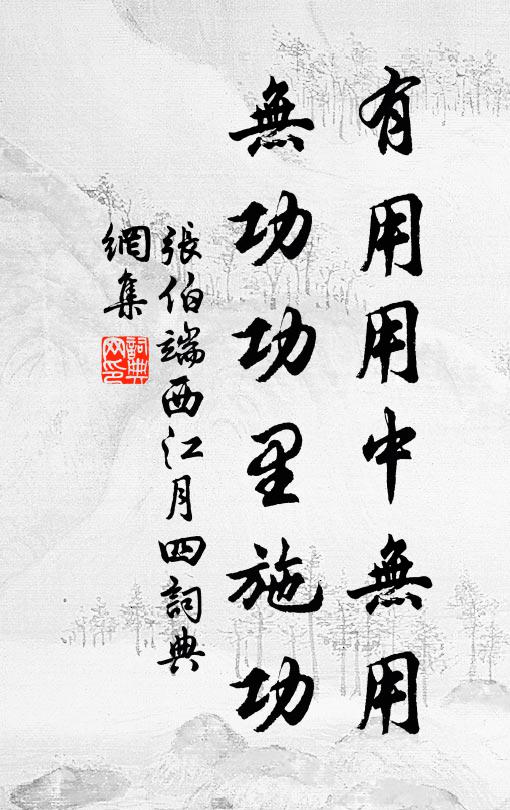 有用用中無用
無功功里施功
張伯端西江月四詞典
網集
詞典網印